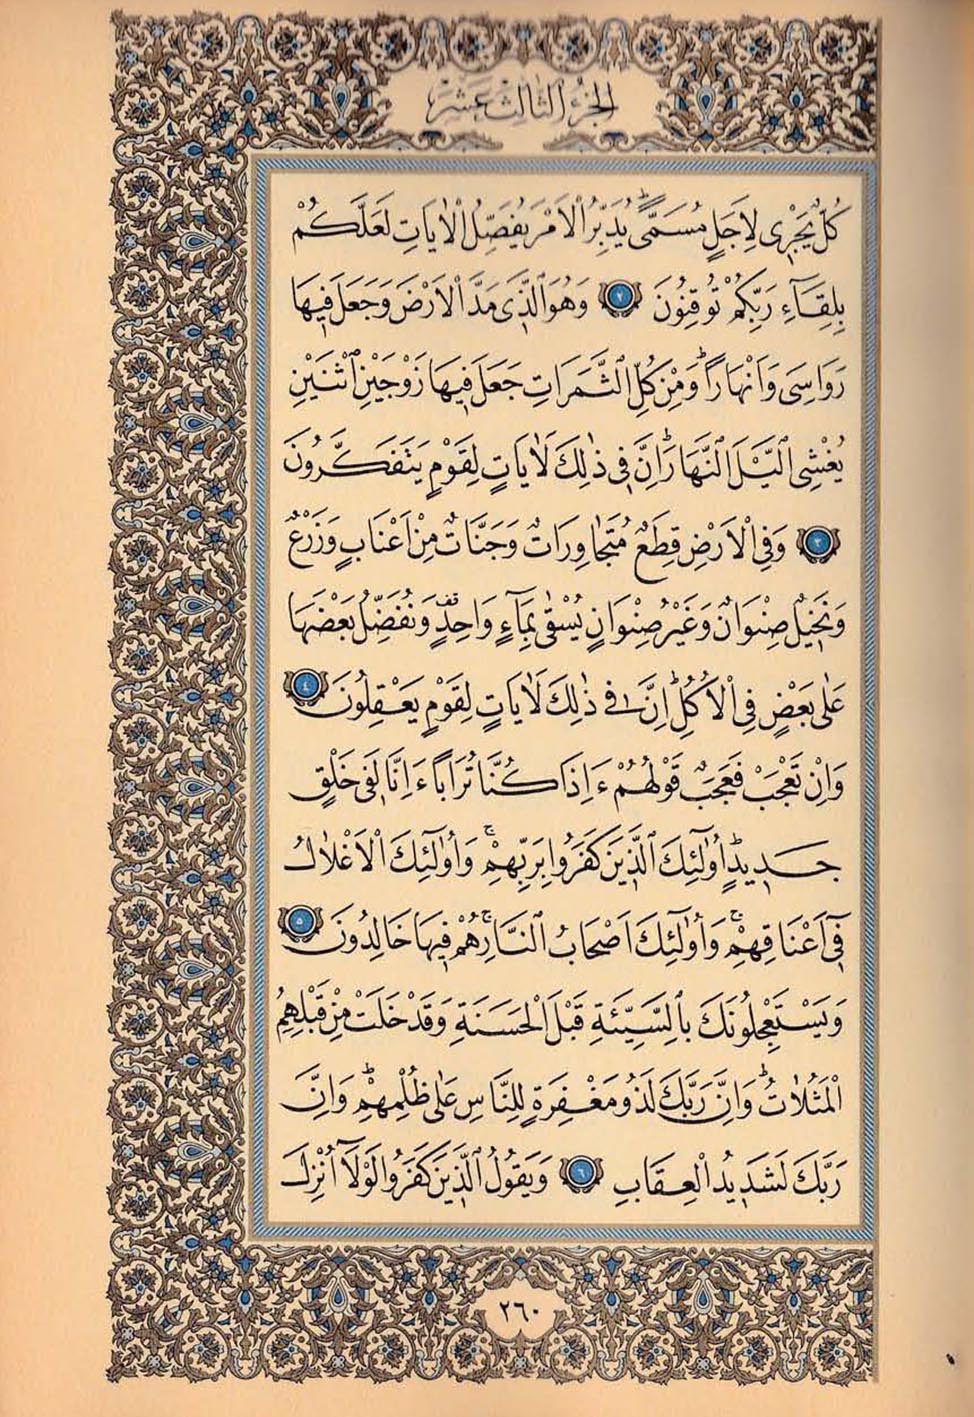 الجزء الثالث عشر
كُلٌّ يَجْرِى لِاَجَلٍ مُسَمًّىۜ يُدَبِّرُ الْاَمْرَ يُفَصِّلُ الْاٰيَاتِ لَعَلَّكُمْ
بِلِقَٓاءِ رَبِّكُمْ تُوقِنُونَ ﴿٢﴾ وَهُوَ الَّذٖى مَدَّ الْاَرْضَ وَجَعَلَ فٖيهَا
رَوَاسِىَ وَاَنْهَاراًۜ وَمِنْ كُلِّ الثَّمَرَاتِ جَعَلَ فٖيهَا زَوْجَيْنِ اثْنَيْنِ
يُغْشِى الَّيْلَ النَّهَارَۜ اِنَّ فٖى ذٰلِكَ لَاٰيَاتٍ لِقَوْمٍ يَتَفَكَّرُونَ
﴿٣﴾ وَفِى الْاَرْضِ قِطَعٌ مُتَجَاوِرَاتٌ وَجَنَّاتٌ مِنْ اَعْنَابٍ وَزَرْعٌ
وَنَخٖيلٌ صِنْوَانٌ وَغَيْرُ صِنْوَانٍ يُسْقٰى بِمَٓاءٍ وَاحِدٍ وَنُفَضِّلُ بَعْضَهَا
عَلٰى بَعْضٍ فِى الْاُكُلِۜ اِنَّ فٖى ذٰلِكَ لَاٰيَاتٍ لِقَوْمٍ يَعْقِلُونَ ﴿٤﴾
وَاِنْ تَعْجَبْ فَعَجَبٌ قَوْلُهُمْ ءَاِذَا كُنَّا تُرَاباً ءَاِنَّا لَفٖى خَلْقٍ
جَدٖيدٍۜ اُو۬لٰٓئِكَ الَّذٖينَ كَفَرُوا بِرَبِّهِمْۚ وَاُو۬لٰٓئِكَ الْاَغْلَالُ
فٖٓى اَعْنَاقِهِمْۚ وَاُو۬لٰٓئِكَ اَصْحَابُ النَّارِۚ هُمْ فٖيهَا خَالِدُونَ ﴿٥﴾
وَيَسْتَعْجِلُونَكَ بِالسَّيِّئَةِ قَبْلَ الْحَسَنَةِ وَقَدْ خَلَتْ مِنْ قَبْلِهِمُ
الْمَثُلَاتُۜ وَاِنَّ رَبَّكَ لَذُو مَغْفِرَةٍ لِلنَّاسِ عَلٰى ظُلْمِهِمْۜ وَاِنَّ
رَبَّكَ لَشَدٖيدُ الْعِقَابِ ﴿٦﴾ وَيَقُولُ الَّذٖينَ كَفَرُوا لَوْلَٓا اُنْزِلَ
٢٦٠